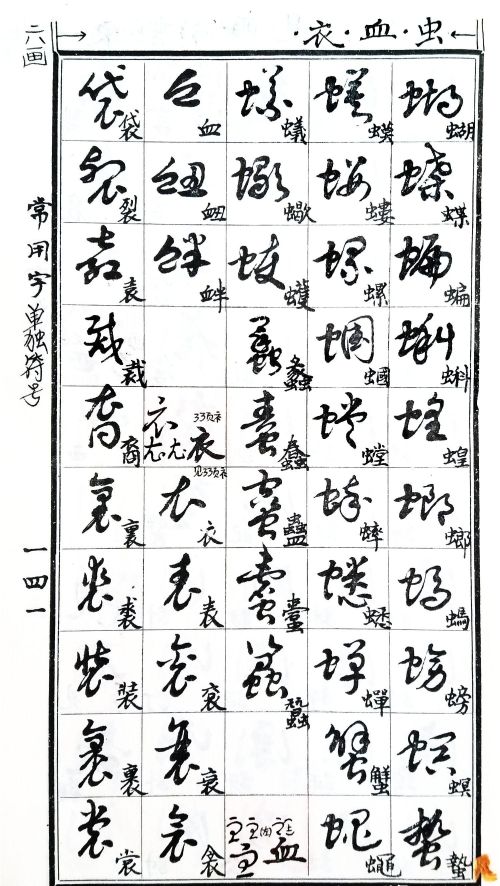 虫·血·衣
二八画
常用字单独符号
一四一
蝴
蝶
蝙
蝌
蝗
螂
螞
螃
螟
蟄
蟆
螻
螺
蟈
螳
蟀
蟋
蟬
蟹
蠅
蟻
蠍
蠖
蠢
蠱
蠹
血
血
衄
衅
33页衤
衣
见33页衤
衣
表
衮
衰
衾
袋
裂
袁
裁
裔
裏
裘
裝
裹
裳